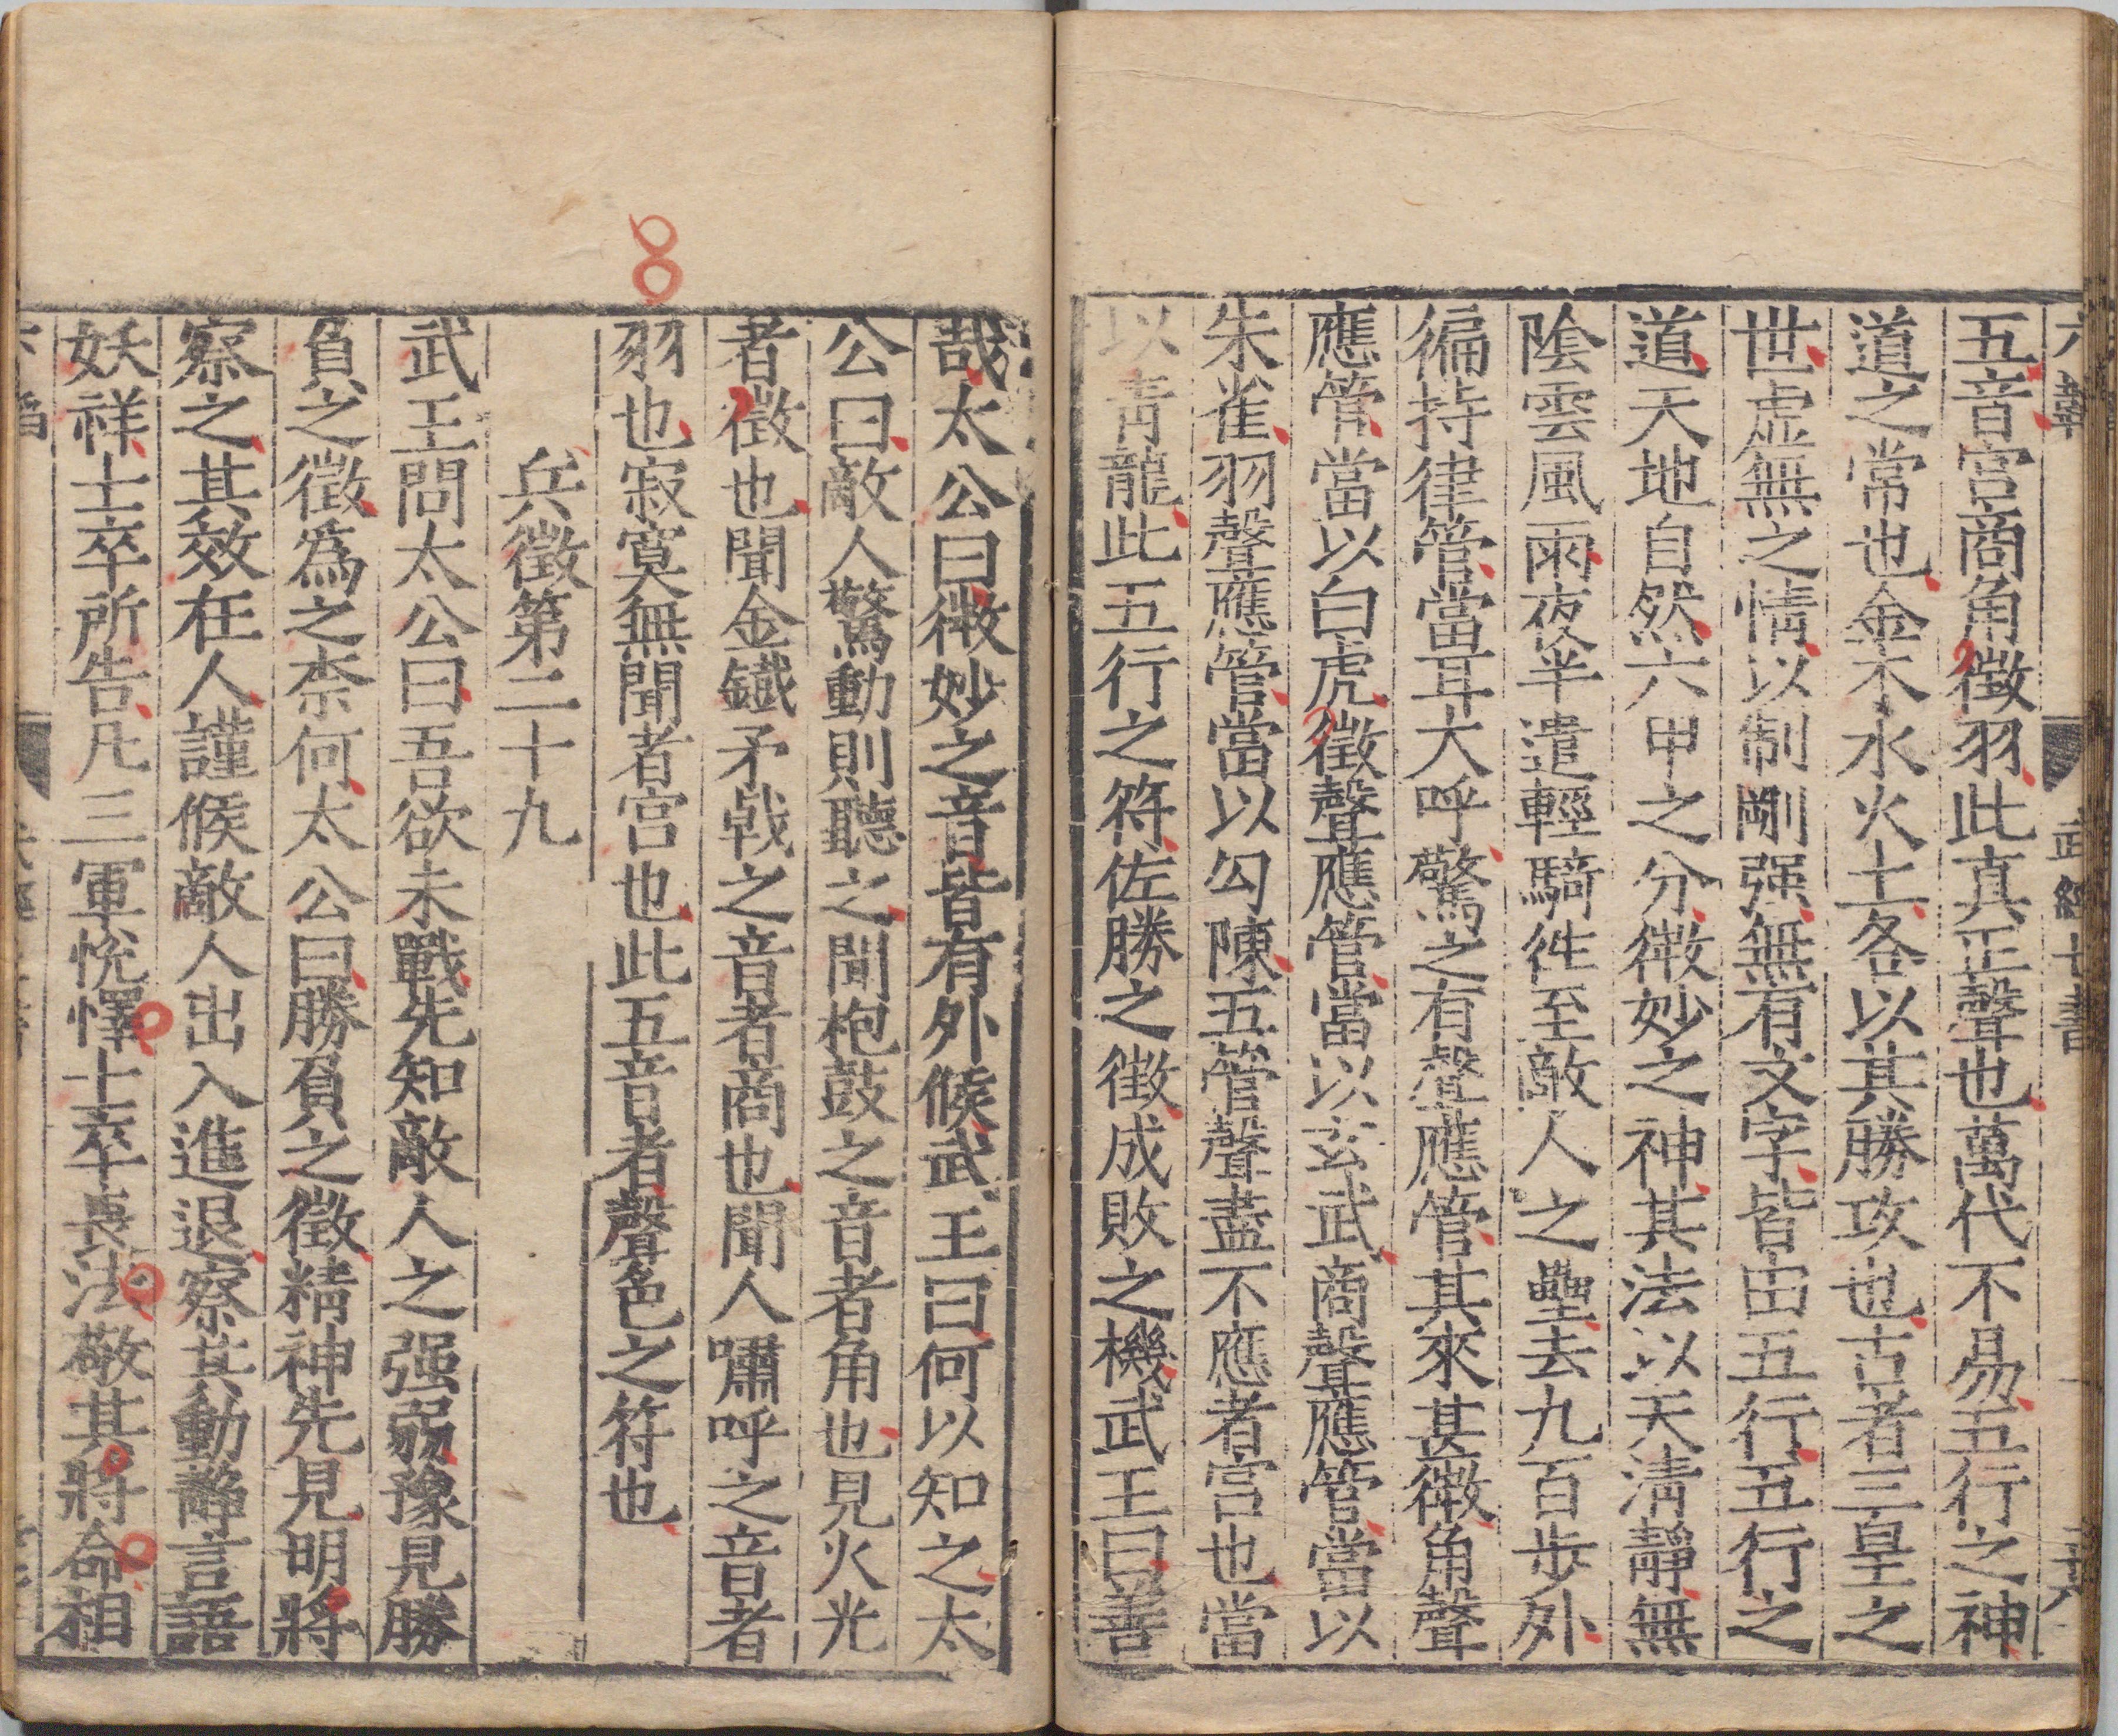 六韜 武經七書
五音宮商角徵羽此真正聲也萬代不易五行之神
道之常也金木水火土各以其勝攻也古者三皇之
世虛無之情以制剛强無有文字皆由五行五行之
道天地自然六甲之分微妙之神其法以天淸靜無
陰雲風雨夜半遣輕騎徃至敵人之壘去九百步外
徧持律管當耳大呼驚之有聲應管其來甚微角聲
應管當以白虎徵聲應管當以玄武商聲應管當以
朱雀羽聲應管當以勾陳五管聲盡不應者宮也當
以靑龍此五行之符佐勝之徵成敗之機武王曰善
哉太公曰微妙之音皆有外候武王曰何以知之太
公曰敵人驚動則聽之聞枹鼓之音者角也見火光
者徵也聞金鐵矛戟之音者商也聞人嘯呼之音者
羽也寂寞無聞者宮也此五音者聲色之符也
兵徵第二十九
武王問太公曰吾欲未戰先知敵人之强弱豫見勝
負之徵爲之柰何太公曰勝負之徵精神先見明將
察之其效在人謹候敵人出入進退察其動靜言語
妖祥士卒所告凡三軍恱懌士卒畏法敬其將命相